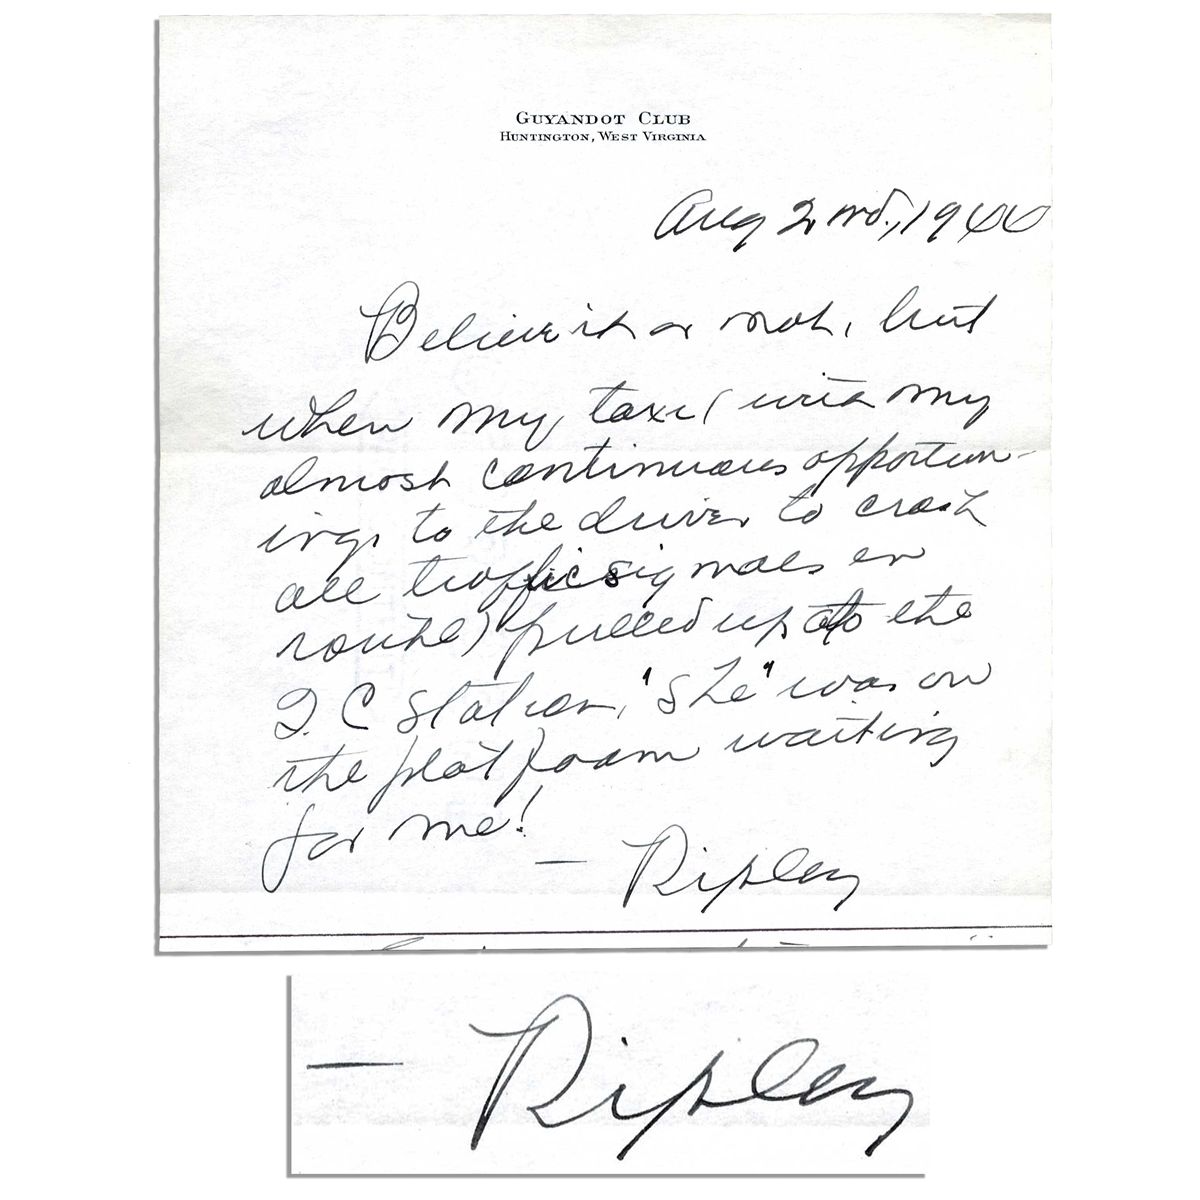 GUYANDOT CLUB
HUNTINGTON, WEST VIRGINIA
Aug 2nd, 1940
Believe it or not, but
when my taxi (with my
almost continuous opportun-
ings to the driver to crash
all traffic signals en
route) pulled up to the
I. C Station, "she" was on
the platform waiting
for me!
— Ripley
— Ripley